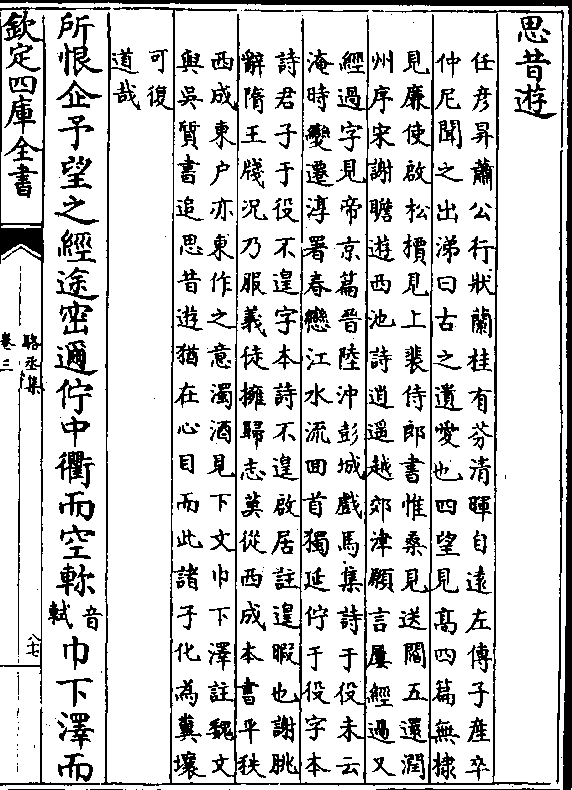 思昔遊
任彦昇蕭公行狀蘭桂有芬清暉自遠左傳子産卒
仲尼聞之出涕曰古之遺愛也四望見髙四篇無棣
見亷使啟松檟見上裴侍郎書惟桑見送閻五還潤
州序宋謝瞻遊西池詩逍遥越郊津願言屢經過又
經過字見帝京篇晉陸沖彭城戲馬集詩于役未云
淹時變遷淳署春戀江水流回首獨延佇于役字本
詩君子于役不遑字本詩不遑啟居註遑暇也謝朓
辭隋王牋況乃服義徒擁歸志莫從西成本書平秩
西成東户亦東作之意濁酒見下文巾下澤註魏文
與吳質書追思昔遊猶在心目而此諸子化為糞壤
可復
道哉
所恨企予望之經途密邇佇中衢而空軫音軾巾下澤而
欽定四庫全書
駱丞集
卷三
八七